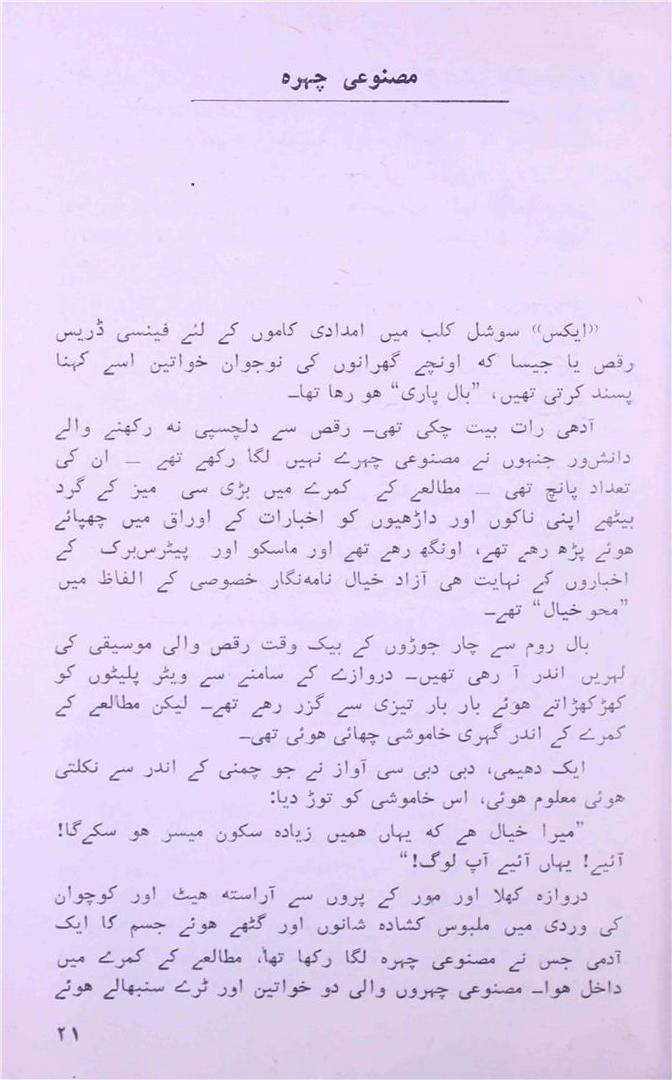 مصنوعی چہرہ
«ایکس» سوشل کلب میں امدادی کاموں کے لئے فینسی ڈریس
رقص یا جیسا کہ اونچے گھرانوں کی نوجوان خواتین اسے کہنا
پسند کرتی تھیں، ”بال پاری“ ہو رہا تھا۔
آدھی رات بیت چکی تھی۔ رقص سے دلچسپی نہ رکھنے والے
دانش‌ور جنہوں نے مصنوعی چہرے نہیں لگا رکھے تھے — ان کی
تعداد پانچ تھی — مطالعے کے کمرے میں بڑی سی میز کے گرد
بیٹھے اپنی ناکوں اور داڑھیوں کو اخبارات کے اوراق میں چھپائے
ہوئے پڑھ رہے تھے، اونگھ رہے تھے اور ماسکو اور پیٹرس‌برک کے
اخباروں کے نہایت ہی آزاد خیال نامہ‌نگار خصوصی کے الفاظ میں
”محو خیال“ تھے۔
بال روم سے چار جوڑوں کے بیک وقت رقص والی موسیقی کی
لہریں اندر آ رہی تھیں۔ دروازے کے سامنے سے ویٹر پلیٹوں کو
کھڑکھڑاتے ہوئے بار بار تیزی سے گزر رہے تھے۔ لیکن مطالعے کے
کمرے کے اندر گہری خاموشی چھائی ہوئی تھی۔
ایک دھیمی، دبی دبی سی آواز نے جو چمنی کے اندر سے نکلتی
ہوئی معلوم ہوئی، اس خاموشی کو توڑ دیا:
”میرا خیال ہے کہ یہاں ہمیں زیادہ سکون میسر ہو سکے‌گا!
آئیے! یہاں آئیے آپ لوگ!“
دروازہ کھلا اور مور کے پروں سے آراستہ ہیٹ اور کوچوان
کی وردی میں ملبوس کشادہ شانوں اور گٹھے ہوئے جسم کا ایک
آدمی جس نے مصنوعی چہرہ لگا رکھا تھا، مطالعے کے کمرے میں
داخل ہوا۔ مصنوعی چہروں والی دو خواتین اور ٹرے سنبھالے ہوئے
۲۱